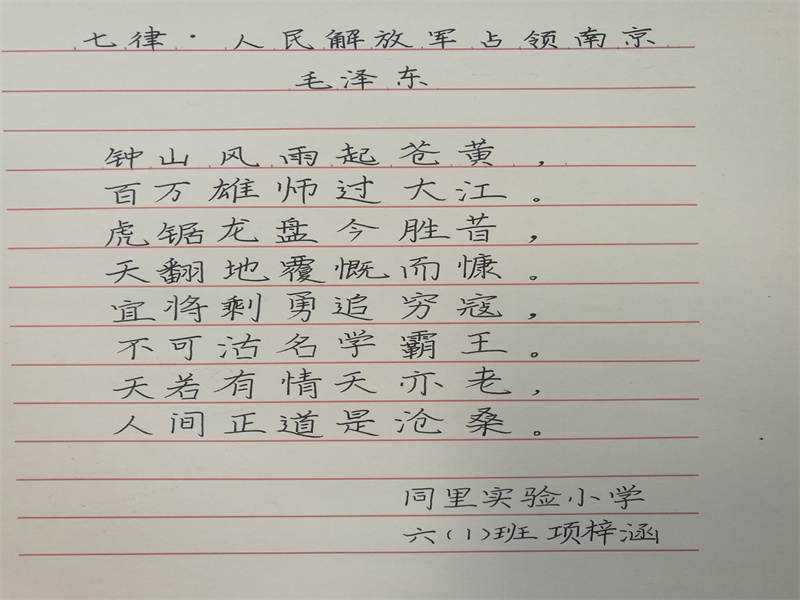 七律·人民解放军占领南京
毛泽东
钟山风雨起苍黄，
百万雄师过大江。
虎锯龙盘今胜昔，
天翻地覆慨而慷。
宜将剩勇追穷寇，
不可沽名学霸王。
天若有情天亦老，
人间正道是沧桑。
同里实验小学
六(1)班项梓涵